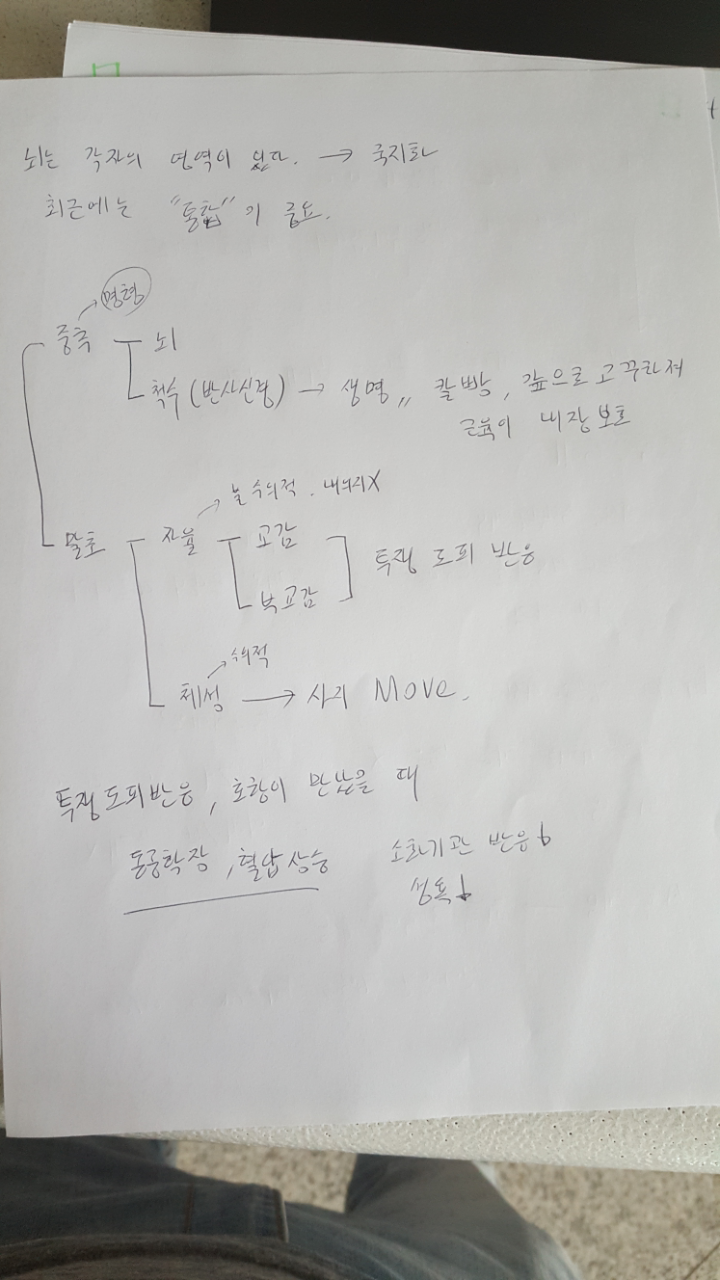 뇌는 각자의 영역이 있다. → 국지화
최근에는 "통합"이 중요.
명령
중추 뇌
척수 (반사신경) → 생명,, 칼빵, 앞으로 고꾸라져
근육이 내장 보호
불수의적. 내의지X
말초 자율 교감
부교감
투쟁 도피 반응
수의적
체성 → 사지 Move.
투쟁도피반응, 호랑이 만났을 때
동공확장, 혈압상승 소화기관 반응↓
성욕↓